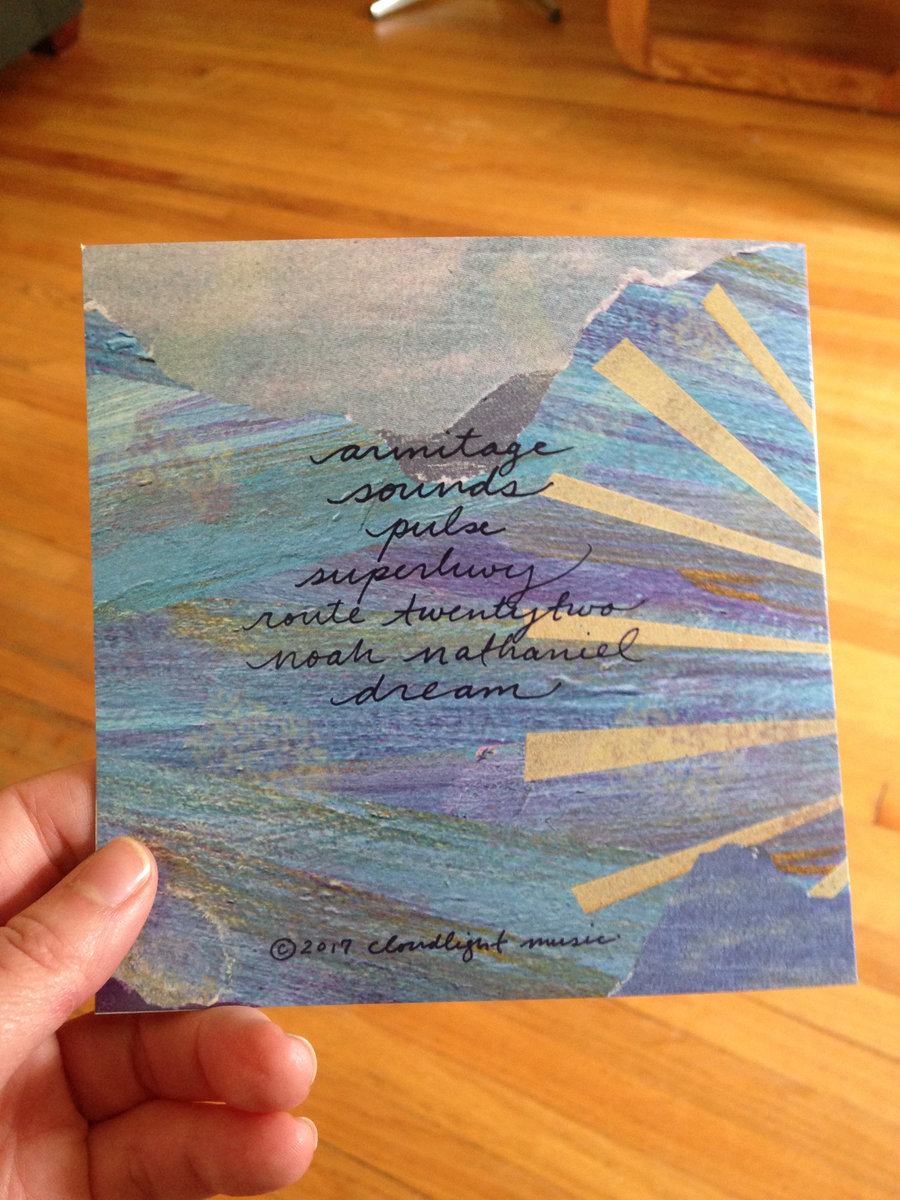 armitage
sounds
pulse
superhwy
route twentytwo
noah nathaniel
dream
©2017 cloudlight music